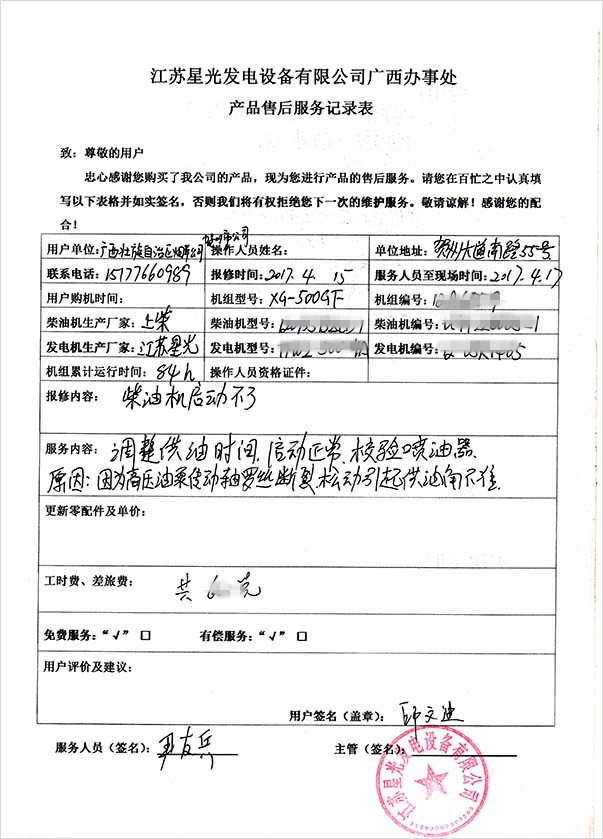 江苏星光发电设备有限公司广西办事处
产品售后服务记录表
致：尊敬的用户
忠心感谢您购买了我公司的产品，现为您进行产品的售后服务。请您在百忙之中认真填
写以下表格并如实签名，否则我们将有权拒绝您下一次的维护服务。敬请谅解！感谢您的配
合！
用户单位：广西壮族自治区 公司 操作人员姓名： 单位地址：贺州大道南路55号
联系电话：15177660989 报修时间：2017.4.15 服务人员至现场时间：2017.4.17
用户购机时间： 机组型号：XG-500GF 机组编号：
柴油机生产厂家：上柴 柴油机型号： 柴油机编号：
发电机生产厂家：江苏星光 发电机型号： 发电机编号：
机组累计运行时间：84h 操作人员资格证件：
报修内容：柴油机启动不了
服务内容：调整供油时间，启动正常，校验喷油器.
原因：因为高压油泵传动轴罗丝断裂，松动引起供油角不准.
更新零配件及单价：
工时费、差旅费： 共 元
免费服务：“√” □ 有偿服务：“√” □
用户评价及建议：
用户签名（盖章）： 文迪
服务人员（签名）： 友兵 主管（签名）：
江苏星光发电设备有限公司